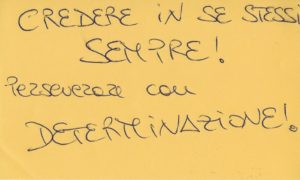 CREDERE IN SE STESSI
SEMPRE!
Perseverare con
DETERMINAZIONE!